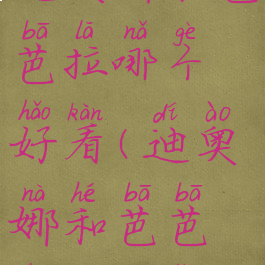 bā lā nǎ gè
芭拉哪个
hǎo kàn dí ào
好看(迪奥
nà hé bā bā
娜和芭芭